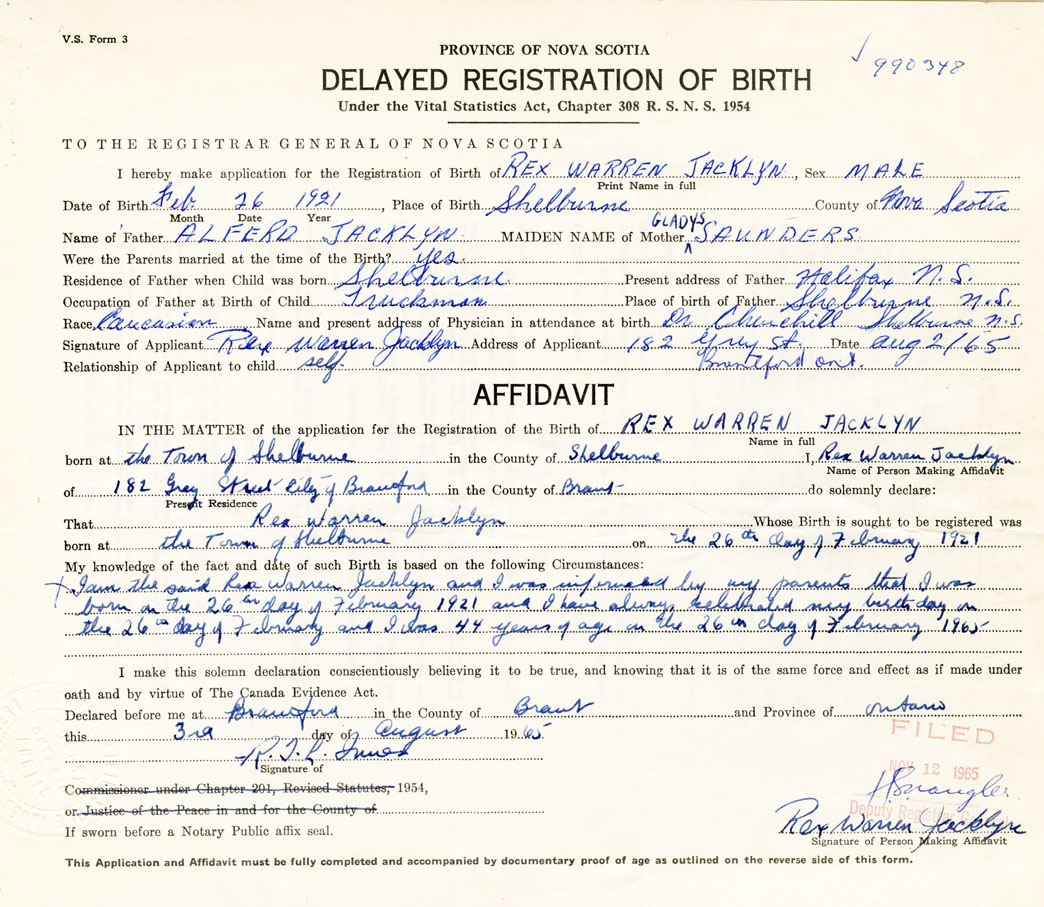 V.S. Form 3
PROVINCE OF NOVA SCOTIA
990348
DELAYED REGISTRATION OF BIRTH
Under the Vital Statistics Act, Chapter 308 R. S. N. S. 1954
TO THE REGISTRAR GENERAL OF NOVA SCOTIA
I hereby make application for the Registration of Birth of REX WARREN JACKLYN, Sex MALE
Print Name in full
Date of Birth Feb. 26 1921, Place of Birth Shelburne County of Nova Scotia
Month Date Year
GLADYS
Name of Father ALFERD JACKLYN MAIDEN NAME of Mother SAUNDERS
Were the Parents married at the time of the Birth? yes.
Residence of Father when Child was born Shelburne Present address of Father Halifax N.S.
Occupation of Father at Birth of Child Truckman Place of birth of Father Shelburne N.S.
Race Caucasion Name and present address of Physician in attendance at birth Dr Churchill Shelburne N.S.
Signature of Applicant Rex Warren Jacklyn Address of Applicant 182 Grey St. Date Aug 2/65
Relationship of Applicant to child self. Brantford Ont.
AFFIDAVIT
IN THE MATTER of the application for the Registration of the Birth of REX WARREN JACKLYN
Name in full
born at the Town of Shelburne in the County of Shelburne I, Rex Warren Jacklyn
Name of Person Making Affidavit
of 182 Grey Street City of Brantford in the County of Brant do solemnly declare:
Present Residence
That Rex Warren Jacklyn Whose Birth is sought to be registered was
born at the Town of Shelburne on the 26th day of February 1921
My knowledge of the fact and date of such Birth is based on the following Circumstances:
I am the said Rex Warren Jacklyn and I was informed by my parents that I was
born on the 26th day of February 1921 and I have always celebrated my birthday on
the 26th day of February and I was 44 years of age on the 26th day of February 1965
I make this solemn declaration conscientiously believing it to be true, and knowing that it is of the same force and effect as if made under
oath and by virtue of The Canada Evidence Act.
Declared before me at Brantford in the County of Brant and Province of Ontario
this 3rd day of August 1965
FILED
NOV 12 1965
Signature of
Commissioner under Chapter 201, Revised Statutes, 1954,
or Justice of the Peace in and for the County of
Deputy Registrar
Rex Warren Jacklyn
If sworn before a Notary Public affix seal.
Signature of Person Making Affidavit
This Application and Affidavit must be fully completed and accompanied by documentary proof of age as outlined on the reverse side of this form.